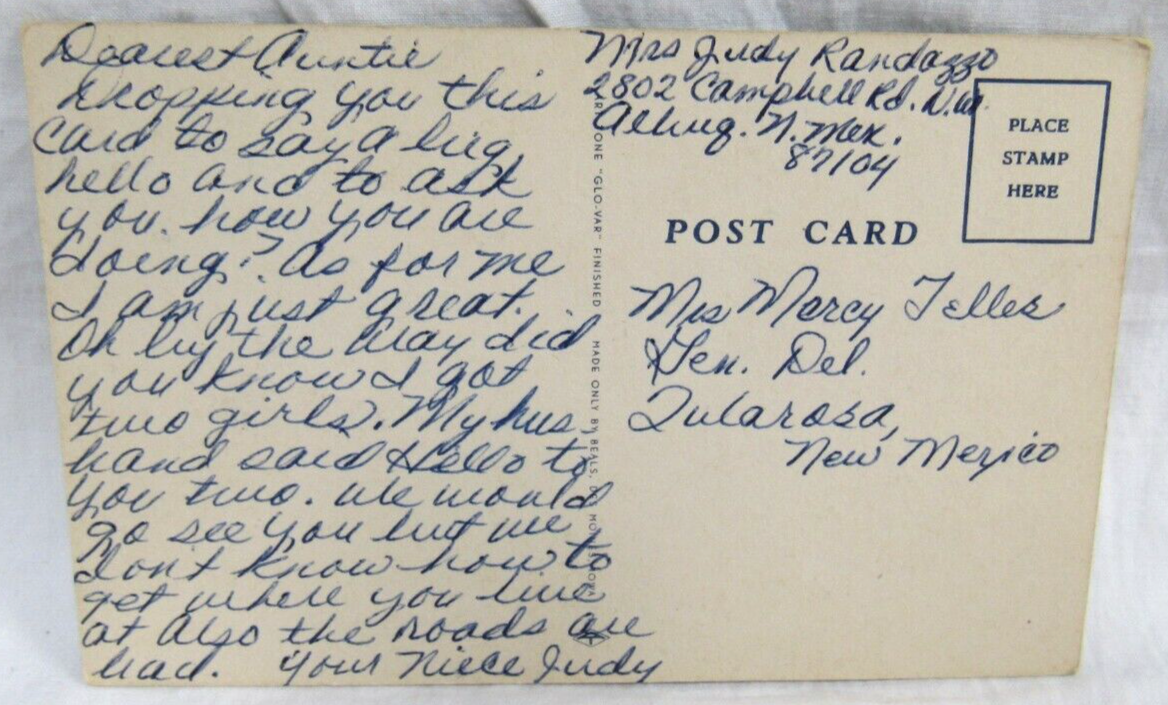 Dearest Auntie
Dropping you this
card to say a big
hello and to ask
you. how you are
doing? As for me
I am just great.
Oh by the way did
you know I got
two girls. My hus-
band said Hello to
you two. We would
go see you but we
dont know how to
get where you live
at Also the roads are
bad. Your Niece Judy
ONE "GLO-VAR" FINISHED MADE ONLY BY BEALS, DES MO
Mrs Judy Randazzo
2802 Campbell Rd. N.W.
Albuq. N. Mex.
87104
PLACE
STAMP
HERE
POST CARD
Mrs Mercy Telles
Gen. Del.
Tularosa,
New Mexico